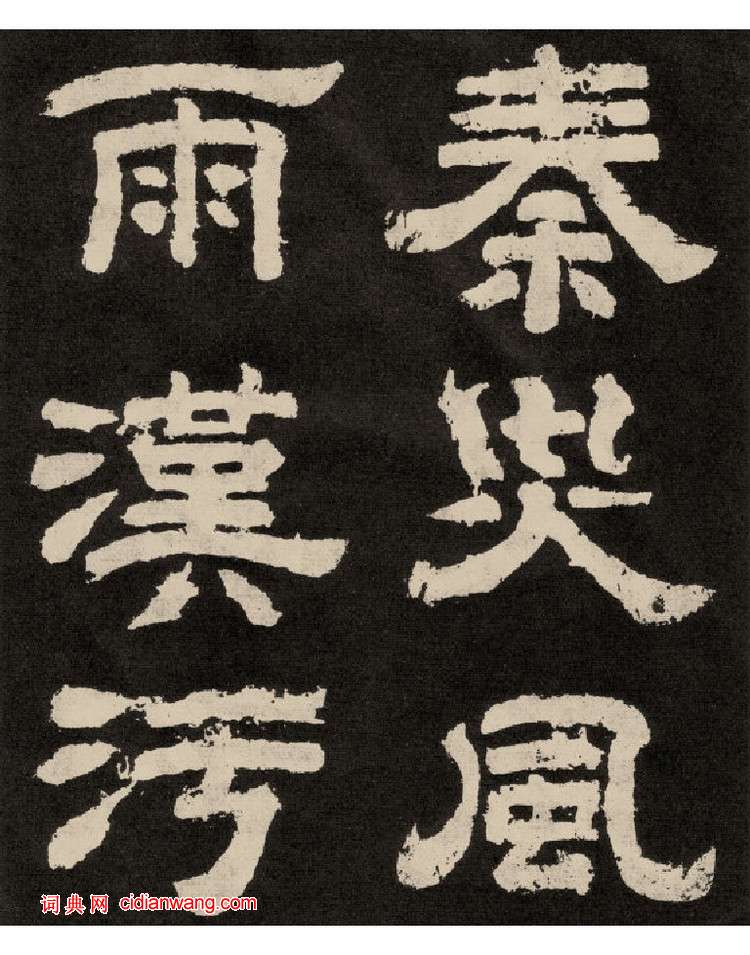 秦災風
雨漢汚
词典网 cidianwang.com